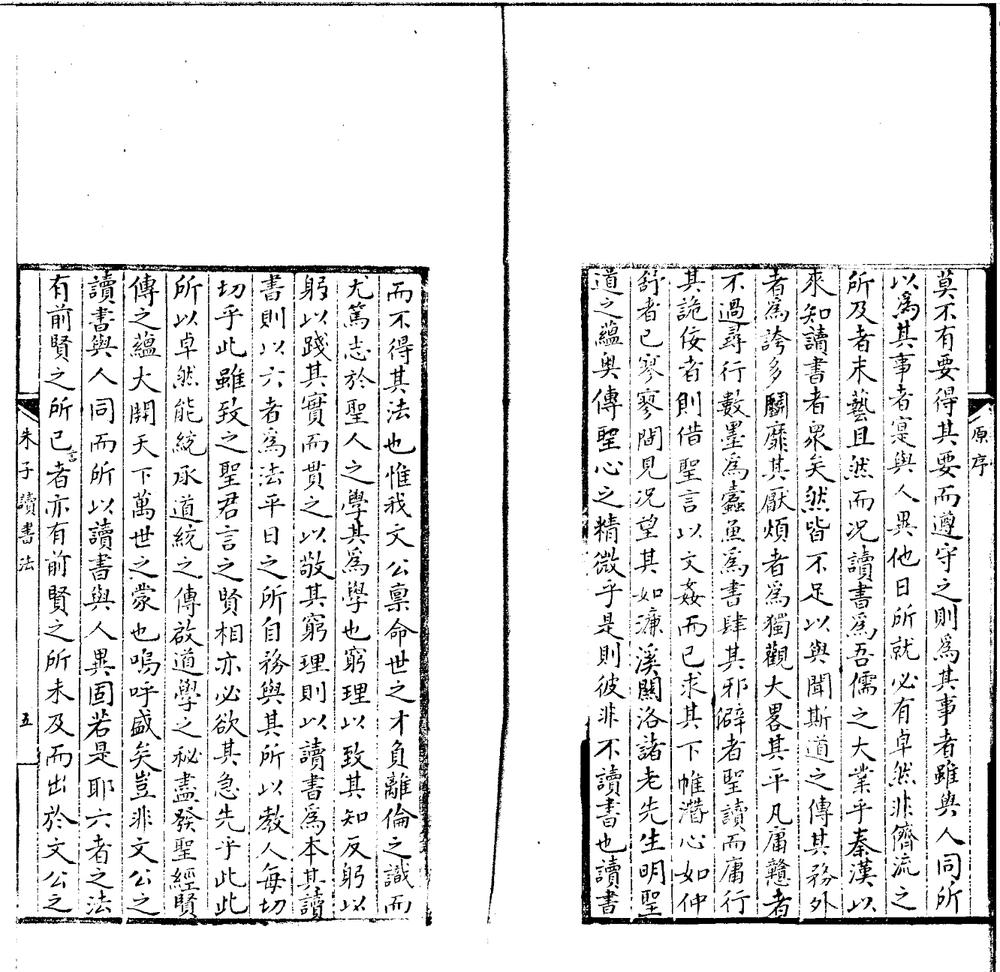 莫不有要得其要而遵守之則爲其事者雖與人同所
以爲其事者寔與人異他日所就必有卓然非儕流之
所及者末藝且然而况讀書爲吾儒之大業乎秦漢以
來知讀書者衆矣然皆不足以與聞斯道之傳其務外
者爲誇多鬬靡其厭煩者爲獨觀大畧其平凡庸戆者
不過尋行數墨爲蠹魚爲書肆其邪僻者聖讀而庸行
其詭佞者則借聖言以文姦而已求其下帷潛心如仲
舒者已寥寥間見况望其如濂溪關洛諸老先生明聖
道之蘊奥傳聖心之精微乎是則彼非不讀書也讀書
原序
而不得其法也惟我文公禀命世之才負離倫之識而
尤篤志於聖人之學其爲學也窮理以致其知反躬以
躬以踐其實而貫之以敬其窮理則以讀書爲本其讀
書則以六者爲法平日之所自務與其所以教人每切
切乎此雖致之聖君言之賢相亦必欲其急先乎此此
所以卓然能統承道統之傳啟道學之秘盡發聖經賢
傳之蘊大開天下萬世之蒙也嗚呼盛矣豈非文公之
讀書與人同而所以讀書與人異固若是耶六者之法
有前賢之所已言者亦有前賢之所未及而出於文公之
朱子讀書法
五